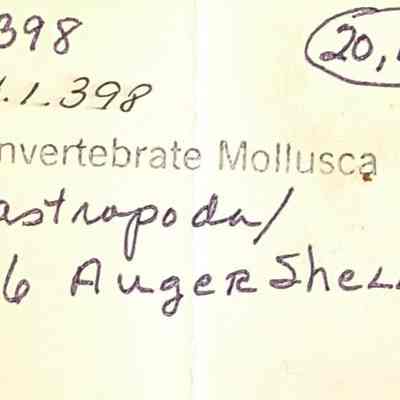 398 20,
1.1.398
nvertebrate Mollusca
astropoda/
6 Auger Shell